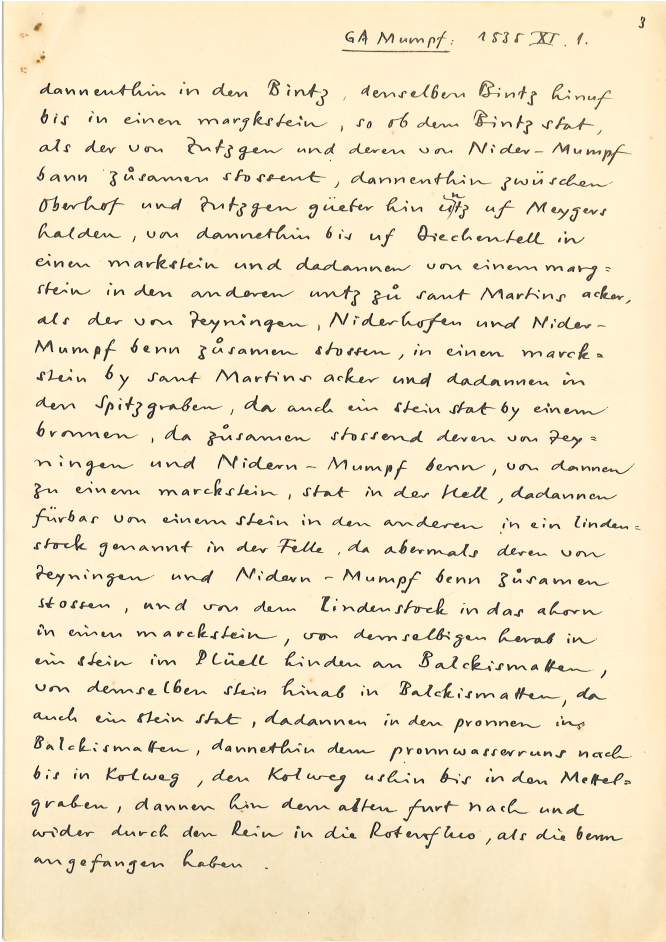 3
GA Mumpf: 1535 XI. 1.
dannenthin in den Bintz, denselben Bintz hinuf
bis in einen margkstein, so ob dem Bintz stat,
als der von Zutzgen und deren von Nider-Mumpf
bann zůsamen stossent, dannenthin zwüschen
Oberhof und Zutzgen güeter hin untz uf Meygers
halden, von dannethin bis uf Ziechentell in
einen markstein und dadannen von einem marg=
stein in den anderen untz zů sant Martins acker,
als der von Zeyningen, Niderhofen und Nider-
Mumpf benn zůsamen stossen, in einen marck=
stein by sant Martins acker und dadannen in
den Spitzgraben, da auch ein stein stat by einem
bronnen, da zůsamen stossend deren von Zey=
ningen und Nidern-Mumpf benn, von dannen
zu einem marckstein, stat in der Hell, dadannen
fürbas von einem stein in den anderen in ein linden=
stock genannt in der Felle, da abermals deren von
Zeyningen und Nidern-Mumpf benn zůsamen
stossen, und von dem lindenstock in das ahorn
in einen marckstein, von demselbigen herab in
ein stein im Plüell hinden an Balckismatten,
von demselben stein hinab in Balckismatten, da
auch ein stein stat, dadannen in den pronnen in
Balckismatten, dannethin dem pronnwasserruns nach
bis in Kolweg, den Kolweg ushin bis in den Mettel=
graben, dannen hin dem alten furt nach und
wider durch den Rein in die Rotenfluo, als die benn
angefangen haben.